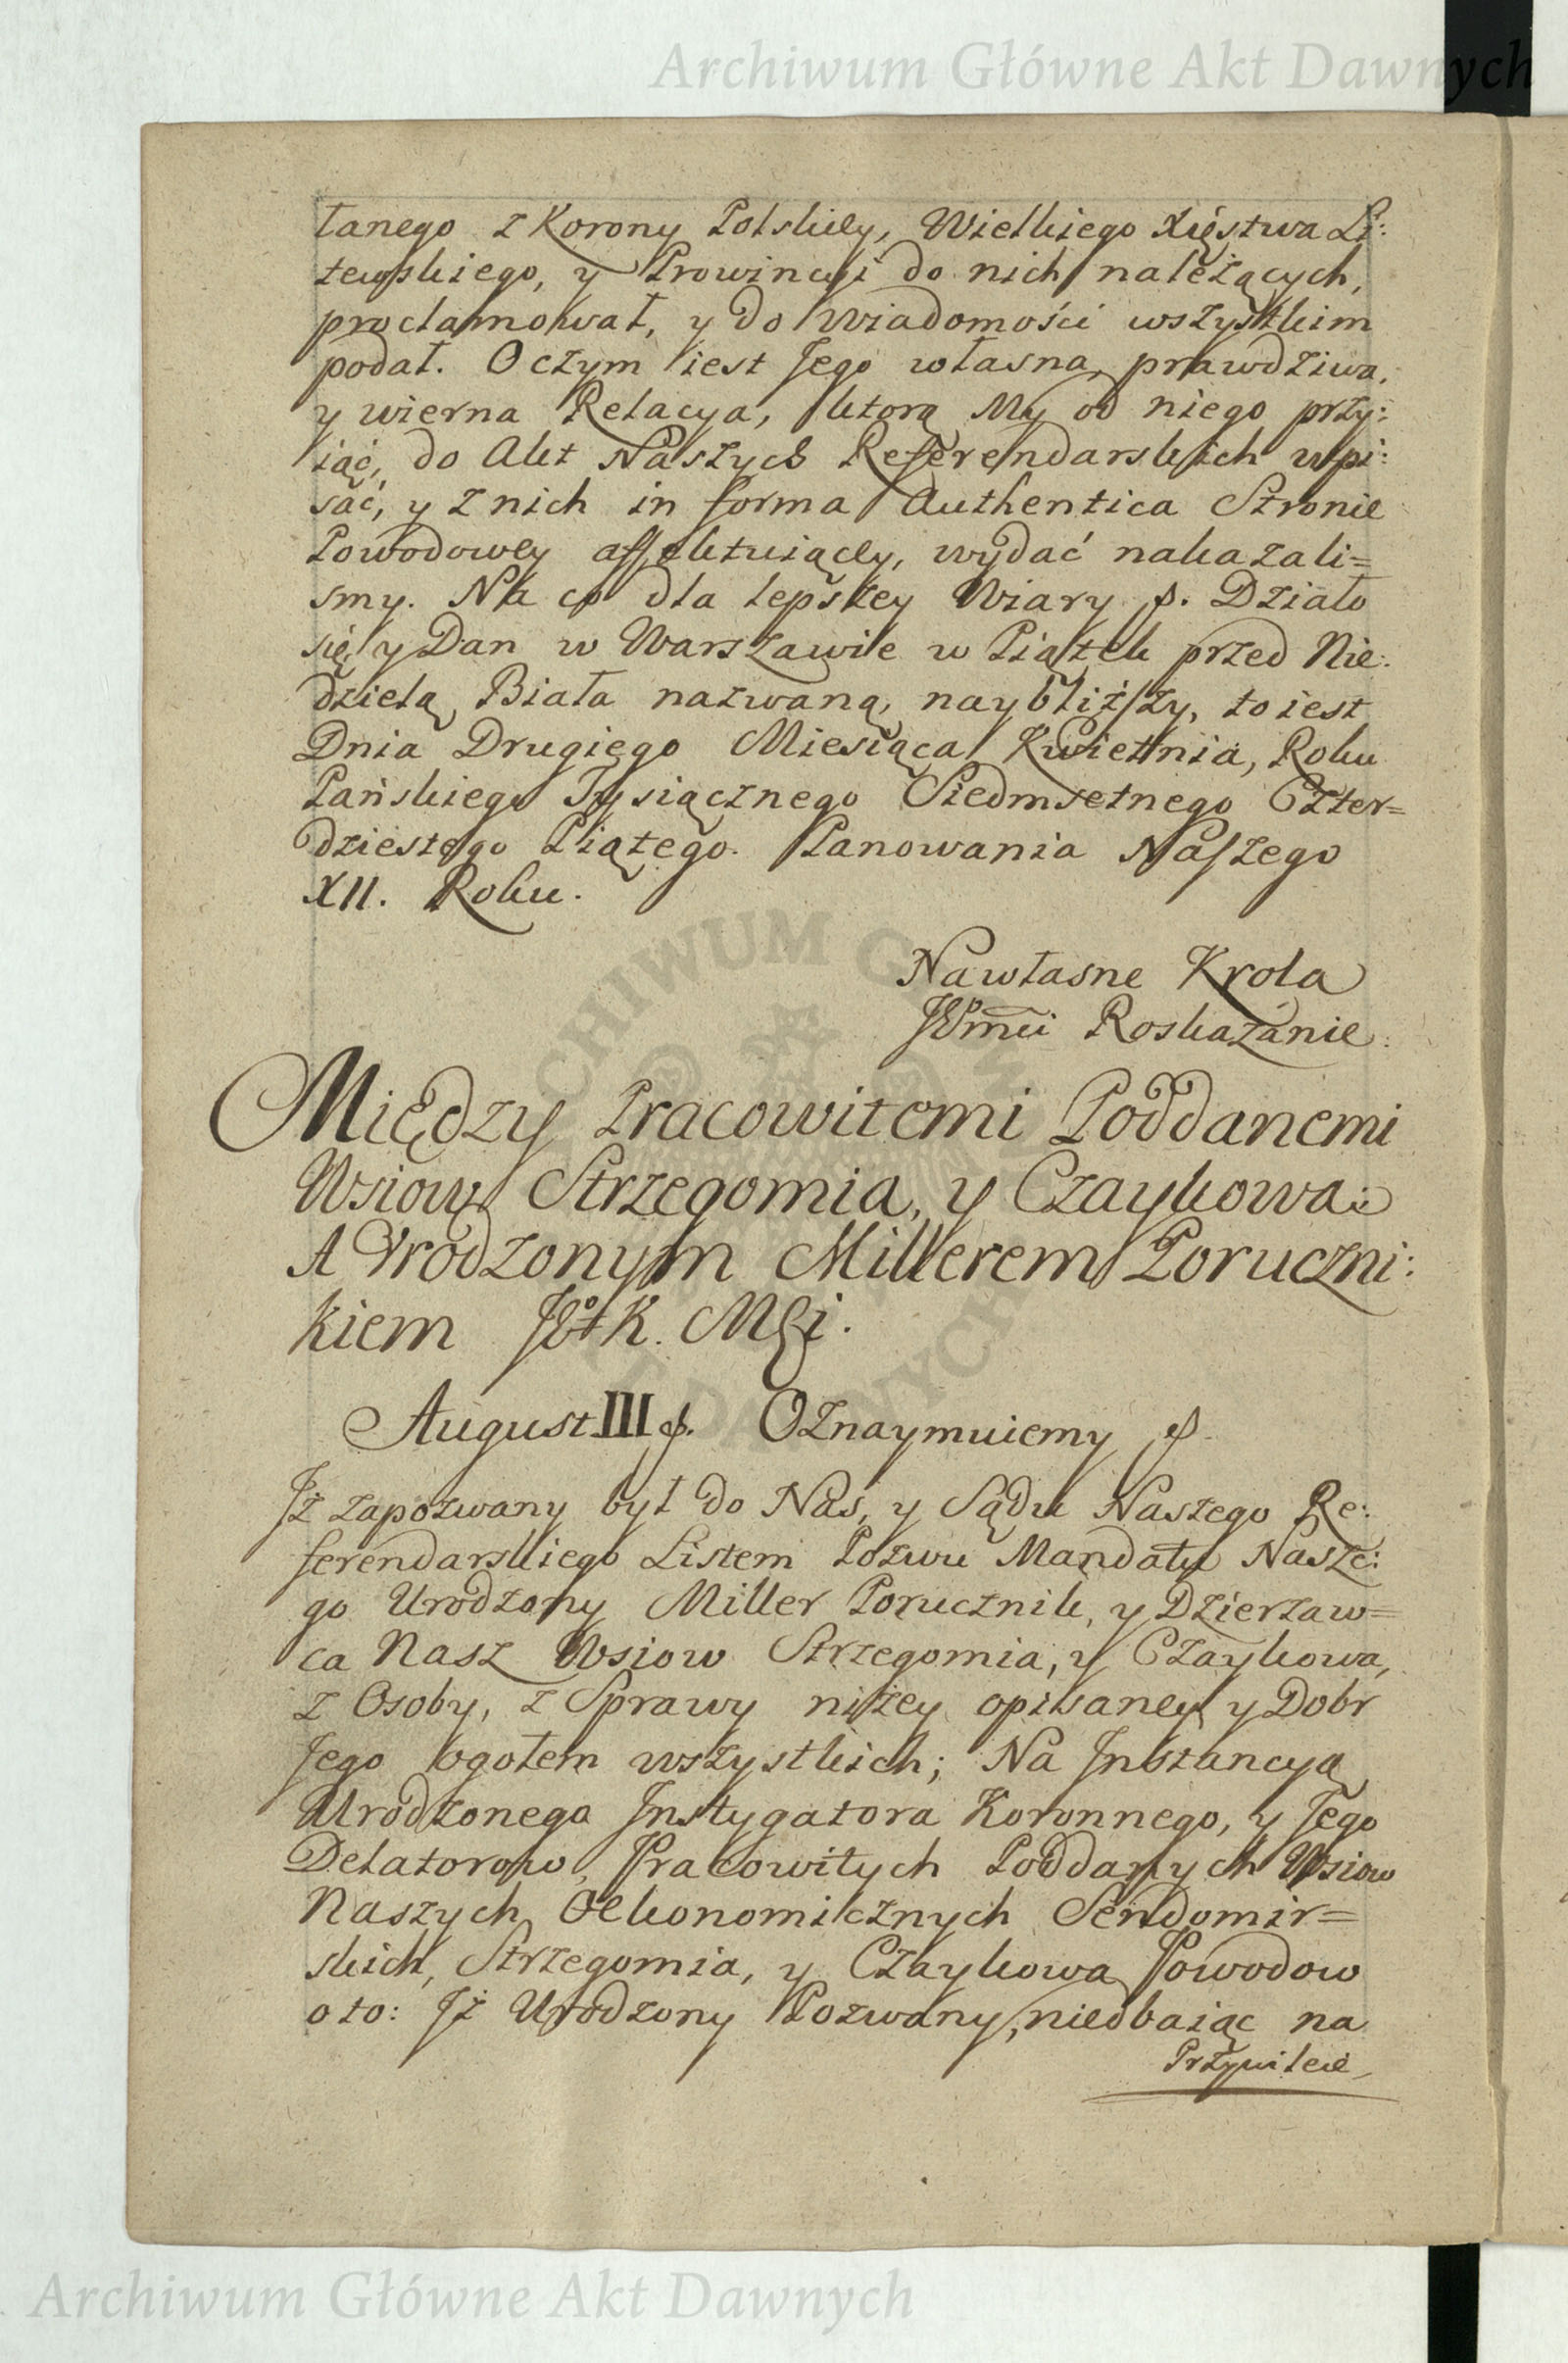 Archiwum Główne Akt Dawnych
łanego z Korony Polskiey, Wielkiego Xięstwa Li:
tewskiego, y Prowincyi do nich należących,
proclamował, y do Wiadomości wszystkim
podał. O czym iest Jego własna, prawdziwa,
y wierna Relacya, ktorą My od niego przy:
iąć, do Akt Naszych Referendarskich wpi:
sać, y z nich in forma Authentica Stronie
Powodowey affektuiącey, wydać nakazali=
smy. Na co dla lepszey Wiary p. Działo
się y Dan w Warszawie w Piątek przed Nie:
dzielą Biała nazwaną, naybliższy, to iest
Dnia Drugiego Miesiąca Kwietnia, Roku
Pańskiego Tysiącznego Siedmsetnego Czter=
dziestego Piątego. Panowania Naszego
XII. Roku.
Na własne Krola
JKmci Roskazanie.
Między Pracowitemi Poddanemi
Wsiow Strzegomia, y Czaykowa:
A Vrodzonym Millerem Poruczni:
kiem K. Mci.
August III p. Oznaymuiemy p.
Jż zapozwany był do Nas, y Sądu Naszego Re:
ferendarskiego Listem Pozwu Mandatu Nasze:
go Urodzony Miller Porucznik, y Dzierzaw=
ca Nasz Wsiow Strzegomia, y Czaykowa,
z Osoby, z Sprawy niżey opisaney y Dobr
Jego ogołem wszystkich; Na Jnstancyą
Urodzonego Jnstygatora Koronnego, y Jego
Delatorow, Pracowitych Poddanych Wsiow
Naszych Oekonomicznych Sendomir=
skich, Strzegomia, y Czaykowa Powodow
o to: Jż Urodzony Pozwany, niedbaiąc na
Przywileie
Archiwum Główne Akt Dawnych